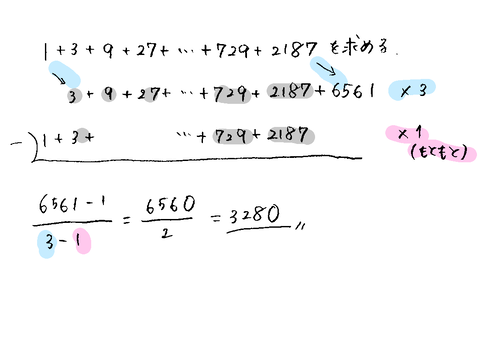 1 + 3 + 9 + 27 + … + 729 + 2187 を求める.
3 + 9 + 27 + … + 729 + 2187 + 6561 × 3
−) 1 + 3 + … + 729 + 2187 × 1
(もともと)
6561 − 1 / 3 − 1 = 6560 / 2 = 3280 〃